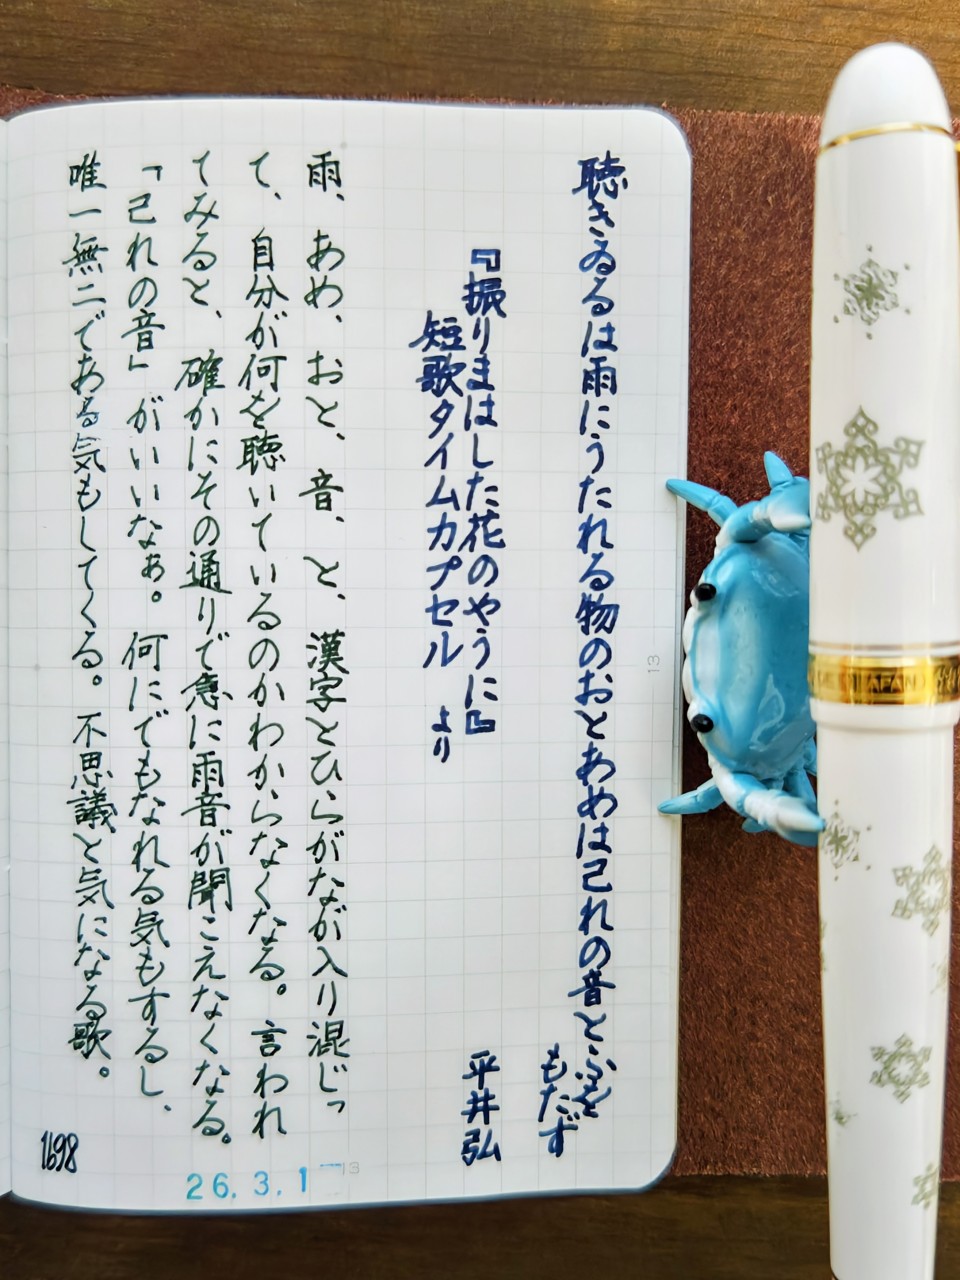 聴きゐるは雨にうたれる物のおとあめは己れの音とふを
もたず
『振りまはした花のやうに』
平井弘
短歌タイムカプセル より
雨、あめ、おと、音、と、漢字とひらがなが入り混じっ
て、自分が何を聴いているのかわからなくなる。言われ
てみると、確かにその通りで急に雨音が聞こえなくなる。
「己れの音」がいいなぁ。何にでもなれる気もするし、
唯一無二である気もしてくる。不思議と気になる歌。
1698
26.3.1
13
13
JAPAN